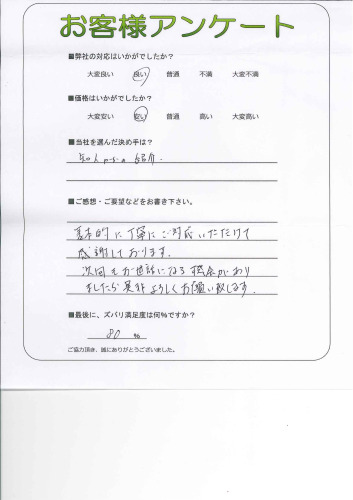 お客様アンケート
■弊社の対応はいかがでしたか？
大変良い 良い 普通 不満 大変不満
■価格はいかがでしたか？
大変安い 安い 普通 高い 大変高い
■当社を選んだ決め手は？
知人からの紹介.
■ご感想・ご要望などをお書き下さい。
基本的に丁寧にご対応いただけて
感謝しております。
次回もお世話になる機会があり
ましたら是非よろしくお願い致します。
■最後に、ズバリ満足度は何%ですか？
80 %
ご協力頂き、誠にありがとうございました。